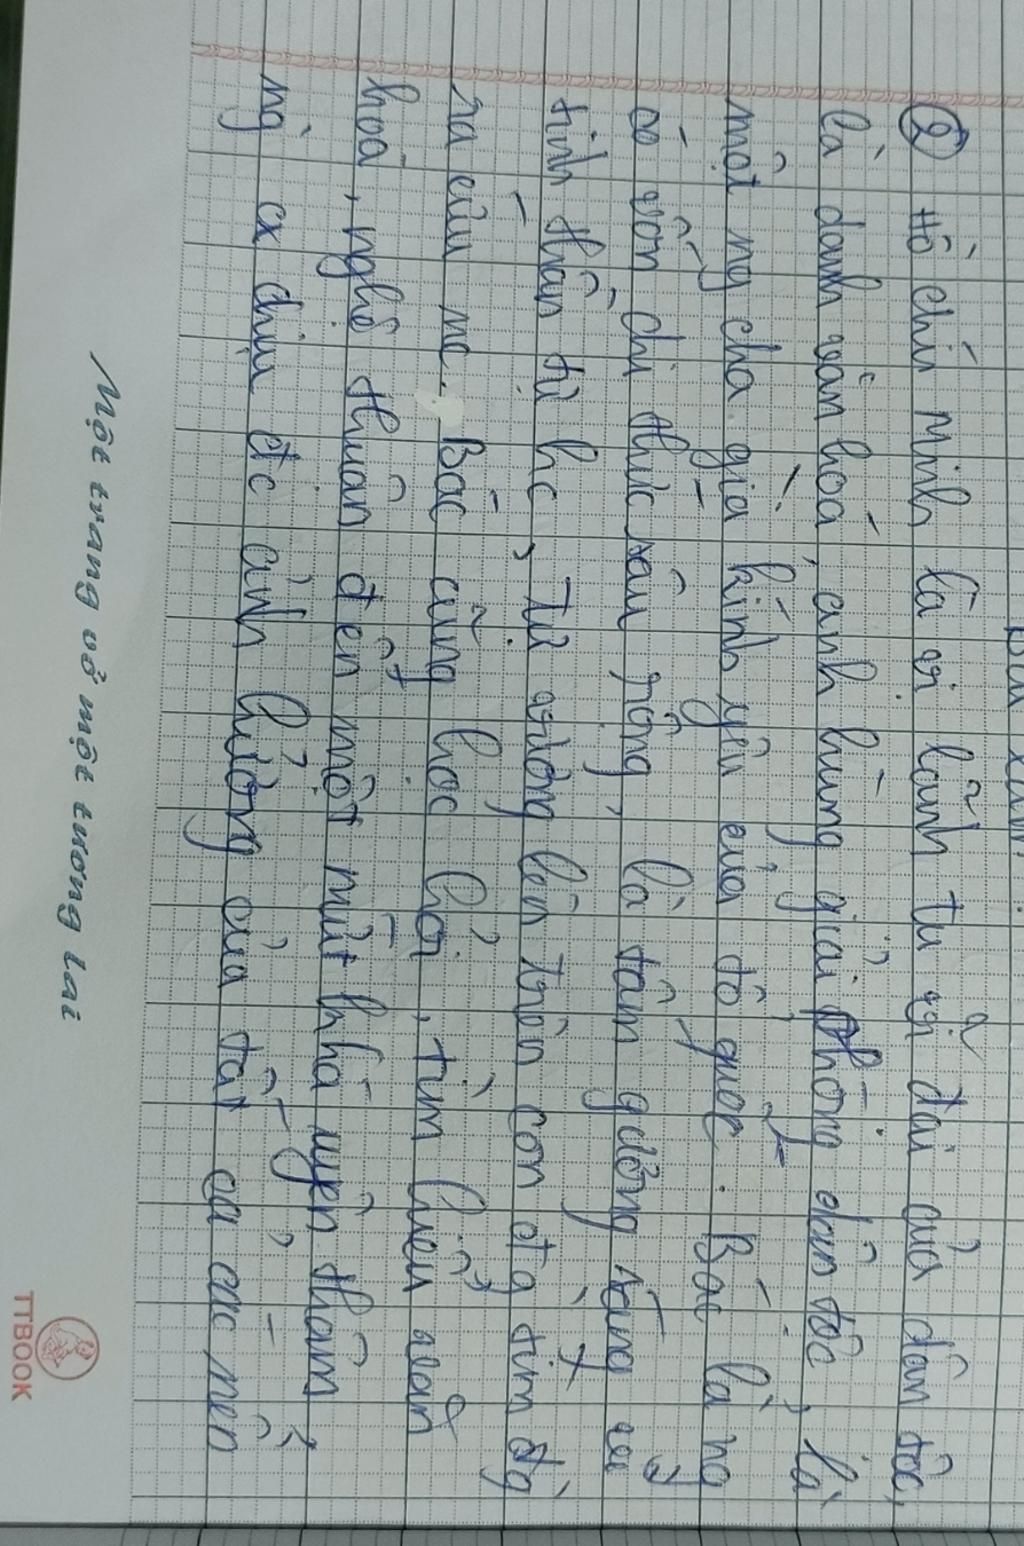 ② Hồ Chí Minh là vị lãnh tụ vĩ đại của dân tộc,
là danh văn hoá, anh hùng giải phóng dân tộc, là
một ng cha già kính yêu của tổ quốc. Bác là ng
có vốn chi thức sâu rộng, là tấm gương sáng về
tinh thần tự hc, Tư tưởng lớn trên con đg tìm đg
ra cứu nc. Bác cũng học hỏi, tìm hiểu văn
hoá, nghệ thuận đến một mứt khá uyên thâm
ng cx chịu đc ảnh hưởng của tất cả các nền
Một trang vở một tương lai
TTBOOK